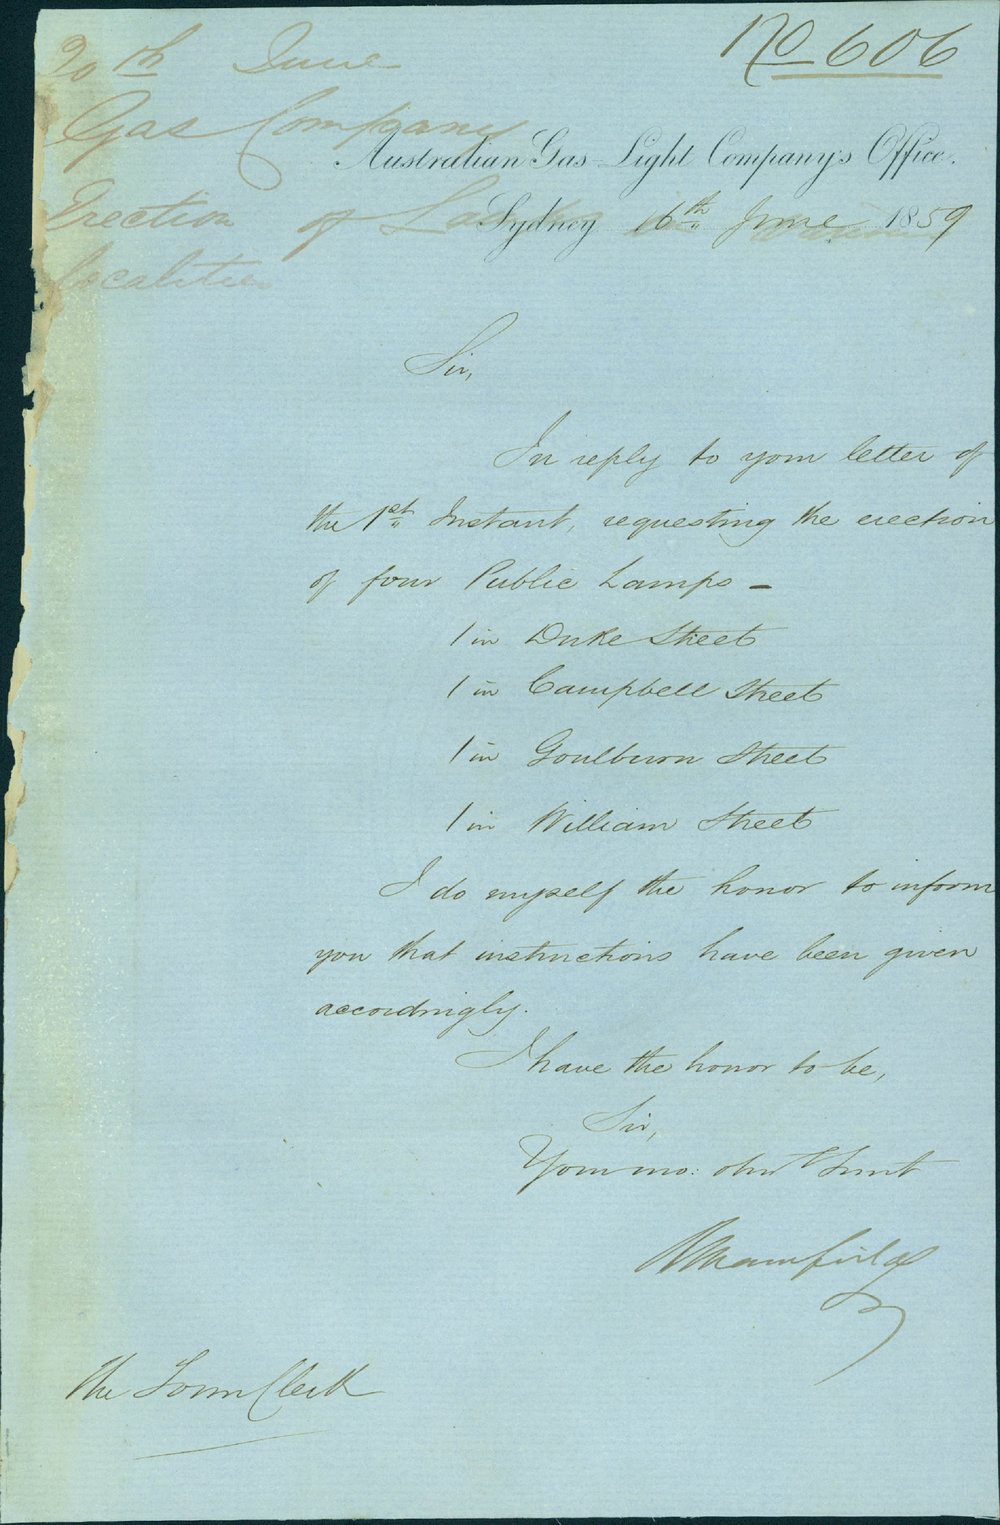 No 606
20th June
Gas Company
Erection of Lamps in
localities
Australian Gas Light Company's Office.
Sydney 16th June 1859
Sir,
In reply to your letter of
the 1st Instant, requesting the erection
of four Public Lamps -
1 in Duke Street
1 in Campbell Street
1 in Goulburn Street
1 in William Street
I do myself the honor to inform
you that instructions have been given
accordingly.
I have the honor to be,
Sir,
Your mo: obt Servt
R Mansfield
The Town Clerk